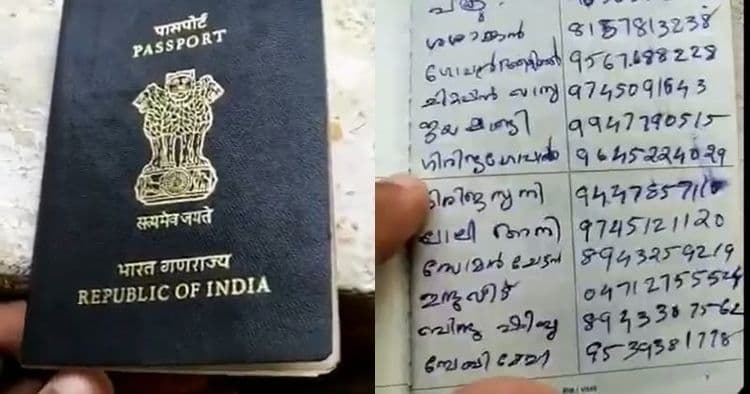 पासपोर्ट
PASSPORT
सत्यमेव जयते
भारत गणराज्य
REPUBLIC OF INDIA
ശശാങ്കൻ 8157813238
9567688228
വാസു 9745091643
ജയ 9947790515
9645224029
94478571
ലാലി 9745121120
സോമൻ ചേട്ടൻ 8943259219
ഇന്ദു വീട് 04712755524
ബിന്ദു ഷിബു 8943307562
ബേബി 9539381778